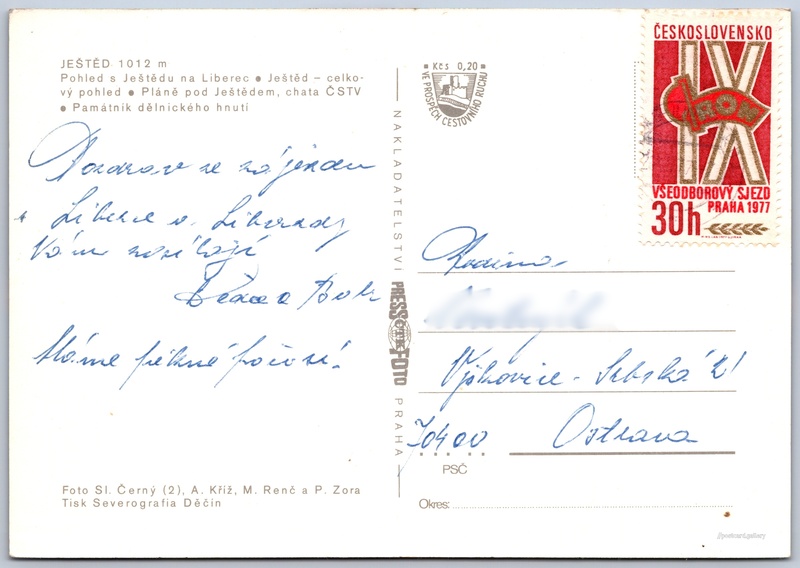 JEŠTĚD 1012 m
Pohled s Ještědu na Liberec ● Ještěd – celko-
vý pohled ● Pláně pod Ještědem, chata ČSTV
● Památník dělnického hnutí
Pozdrav ze zájezdu
Liberce a
Vám zasílají
Máme pěkné počasí.
Foto Sl. Černý (2), A. Kříž, M. Renč a P. Zora
Tisk Severografia Děčín
NAKLADATELSTVÍ PRESSFOTO PRAHA
Kčs 0,20
VE PROSPĚCH CESTOVNÍHO RUCHU
ČESKOSLOVENSKO
IX
VŠEODBOROVÝ SJEZD
PRAHA 1977
30h
Rodina
Výškovice - Srbská 21
70400 Ostrava
PSČ
Okres:
//postcard.gallery